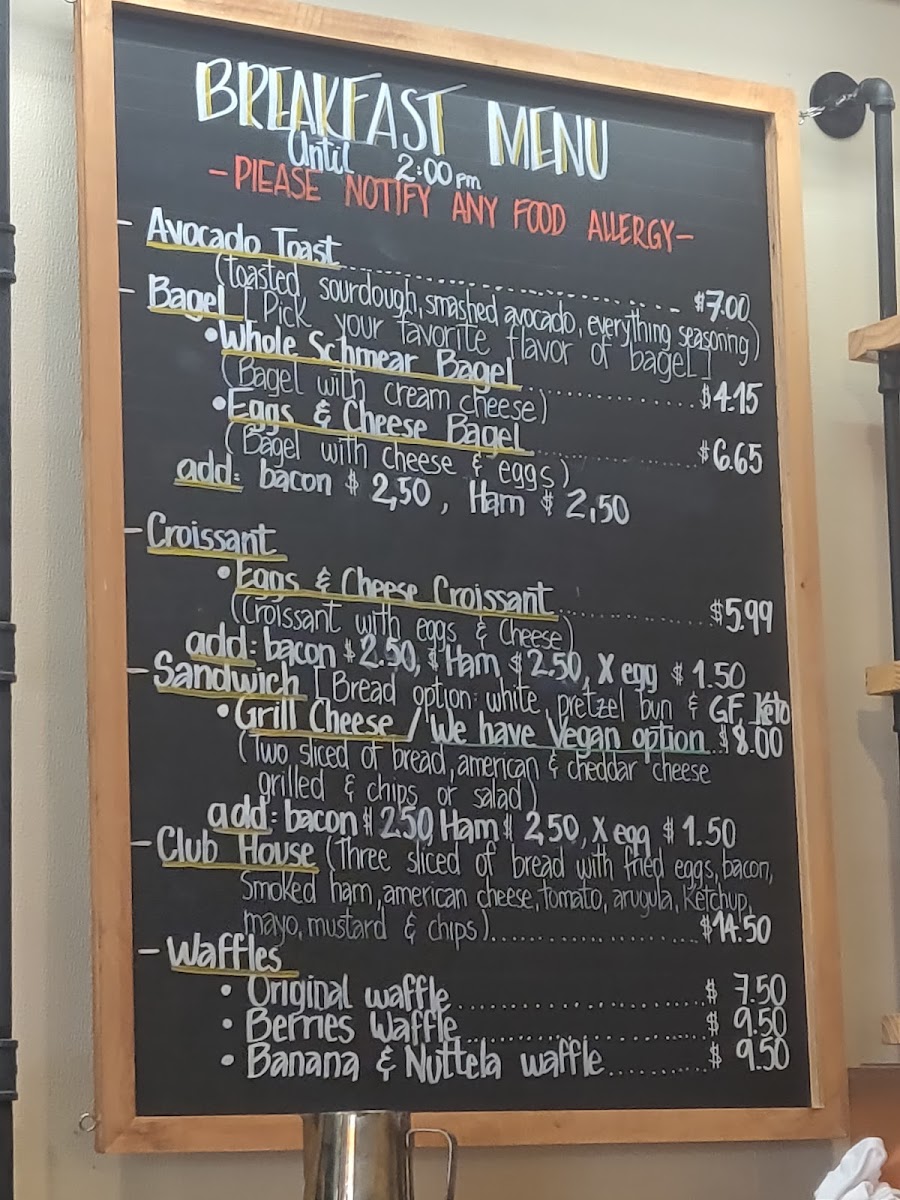 BREAKFAST MENU
Until 2:00 pm
- PlEASE NOTIFY ANY FOOD AllERGY -
- Avocado Toast ........ $7.00
(toasted sourdough, smashed avocado, everything seasoning)
- Bagel [Pick your favorite flavor of bagel]
• Whole Schmear Bagel ........ $4.15
(Bagel with cream cheese)
• Eggs & Cheese Bagel ........ $6.65
(Bagel with cheese & eggs)
add: bacon $ 2,50, Ham $ 2,50
- Croissant
• Eggs & Cheese Croissant ........ $5.99
(Croissant with eggs & Cheese)
add: bacon $ 2.50, $ Ham $ 2.50, X egg $ 1.50
- Sandwich [Bread option: white, pretzel bun & GF, Keto
• Grill Cheese / We have Vegan option .. $8.00
(Two sliced of bread, american & cheddar cheese
grilled & chips or salad)
add: bacon $ 2.50, Ham $ 2,50, X egg $ 1.50
- Club House (Three sliced of bread with fried eggs, bacon,
Smoked ham, american cheese, tomato, arugula, Ketchup,
mayo, mustard & chips) ........ $14.50
- Waffles
• Original waffle ........ $ 7.50
• Berries Waffle ........ $ 9.50
• Banana & Nuttela waffle ........ $ 9.50